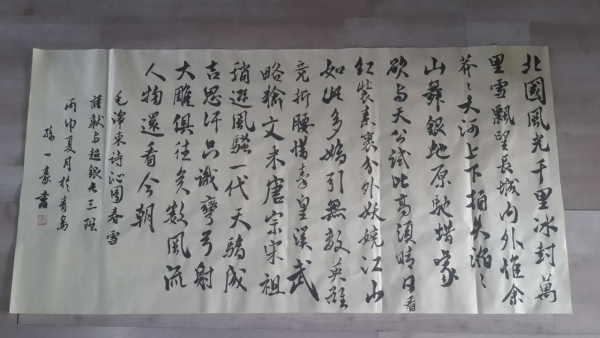 北國風光千里冰封萬
里雪飄望長城内外惟余
莽〻大河上下頓失滔〻
山舞銀蛇原馳蜡象
欲与天公試比高須晴日看
紅裝素裹分外妖嬈江山
如此多嬌引無數英雄
竞折腰惜秦皇漢武
略输文采唐宗宋祖
稍遜風騷一代天驕成
吉思汗只識彎弓射
大雕俱往矣數風流
人物還看今朝
毛澤東詩沁園春雪
謹献与超銀七三班
丙申夏月於青島
孫一豪書